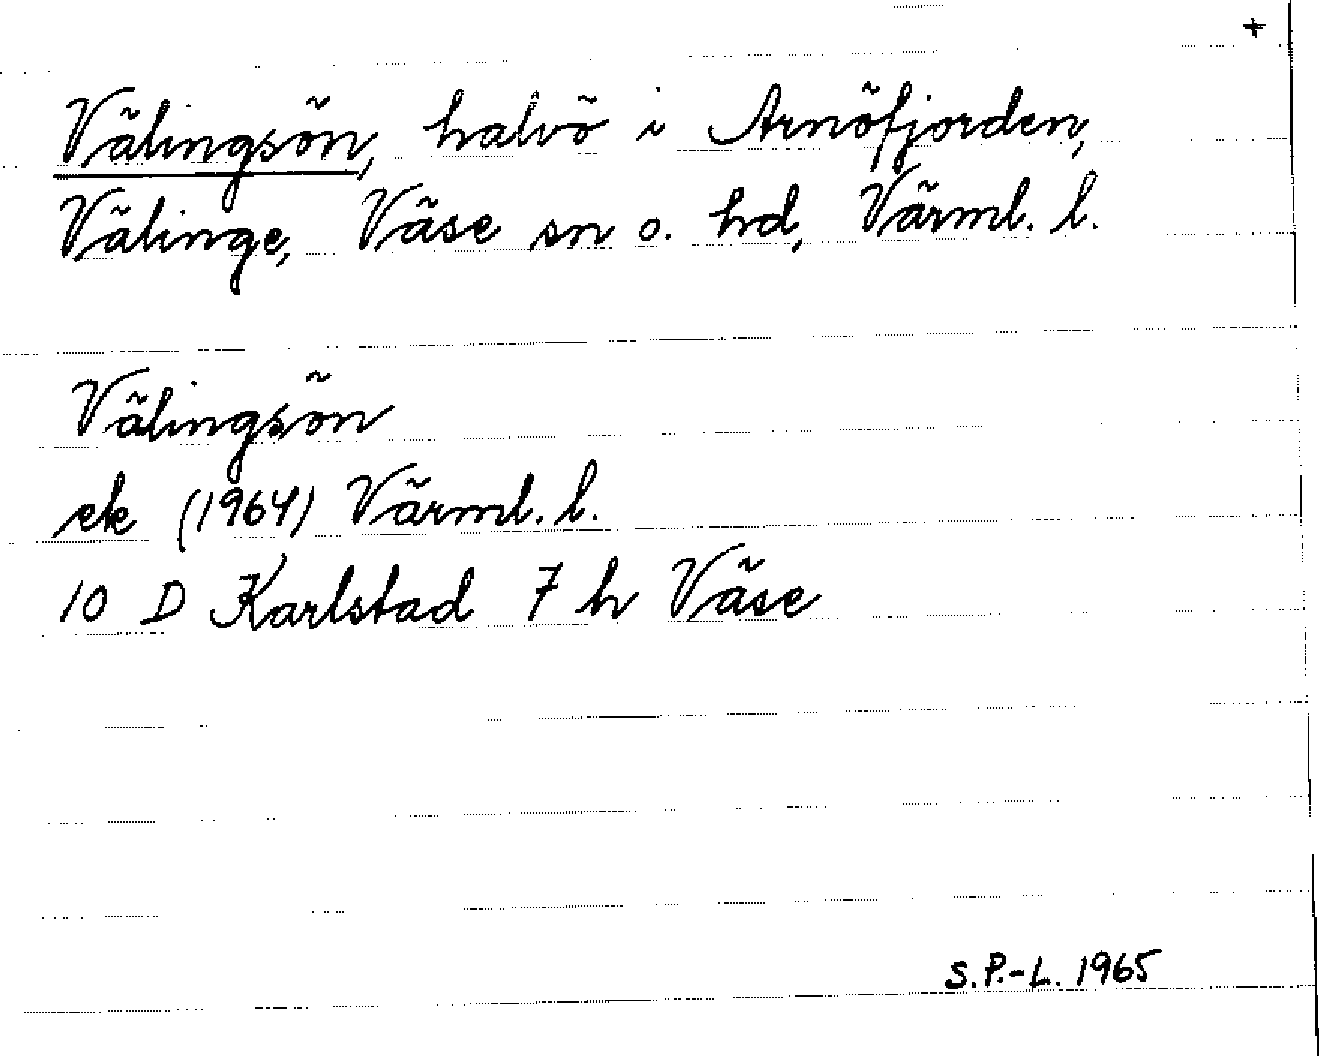 +
Välingsön, halvö i Arnöfjorden,
Välinge, Väse sn o. hd, Värml. l.
Välingsön
ek (1964) Värml. l.
10 D Karlstad 7 h Väse
S.P.-L. 1965